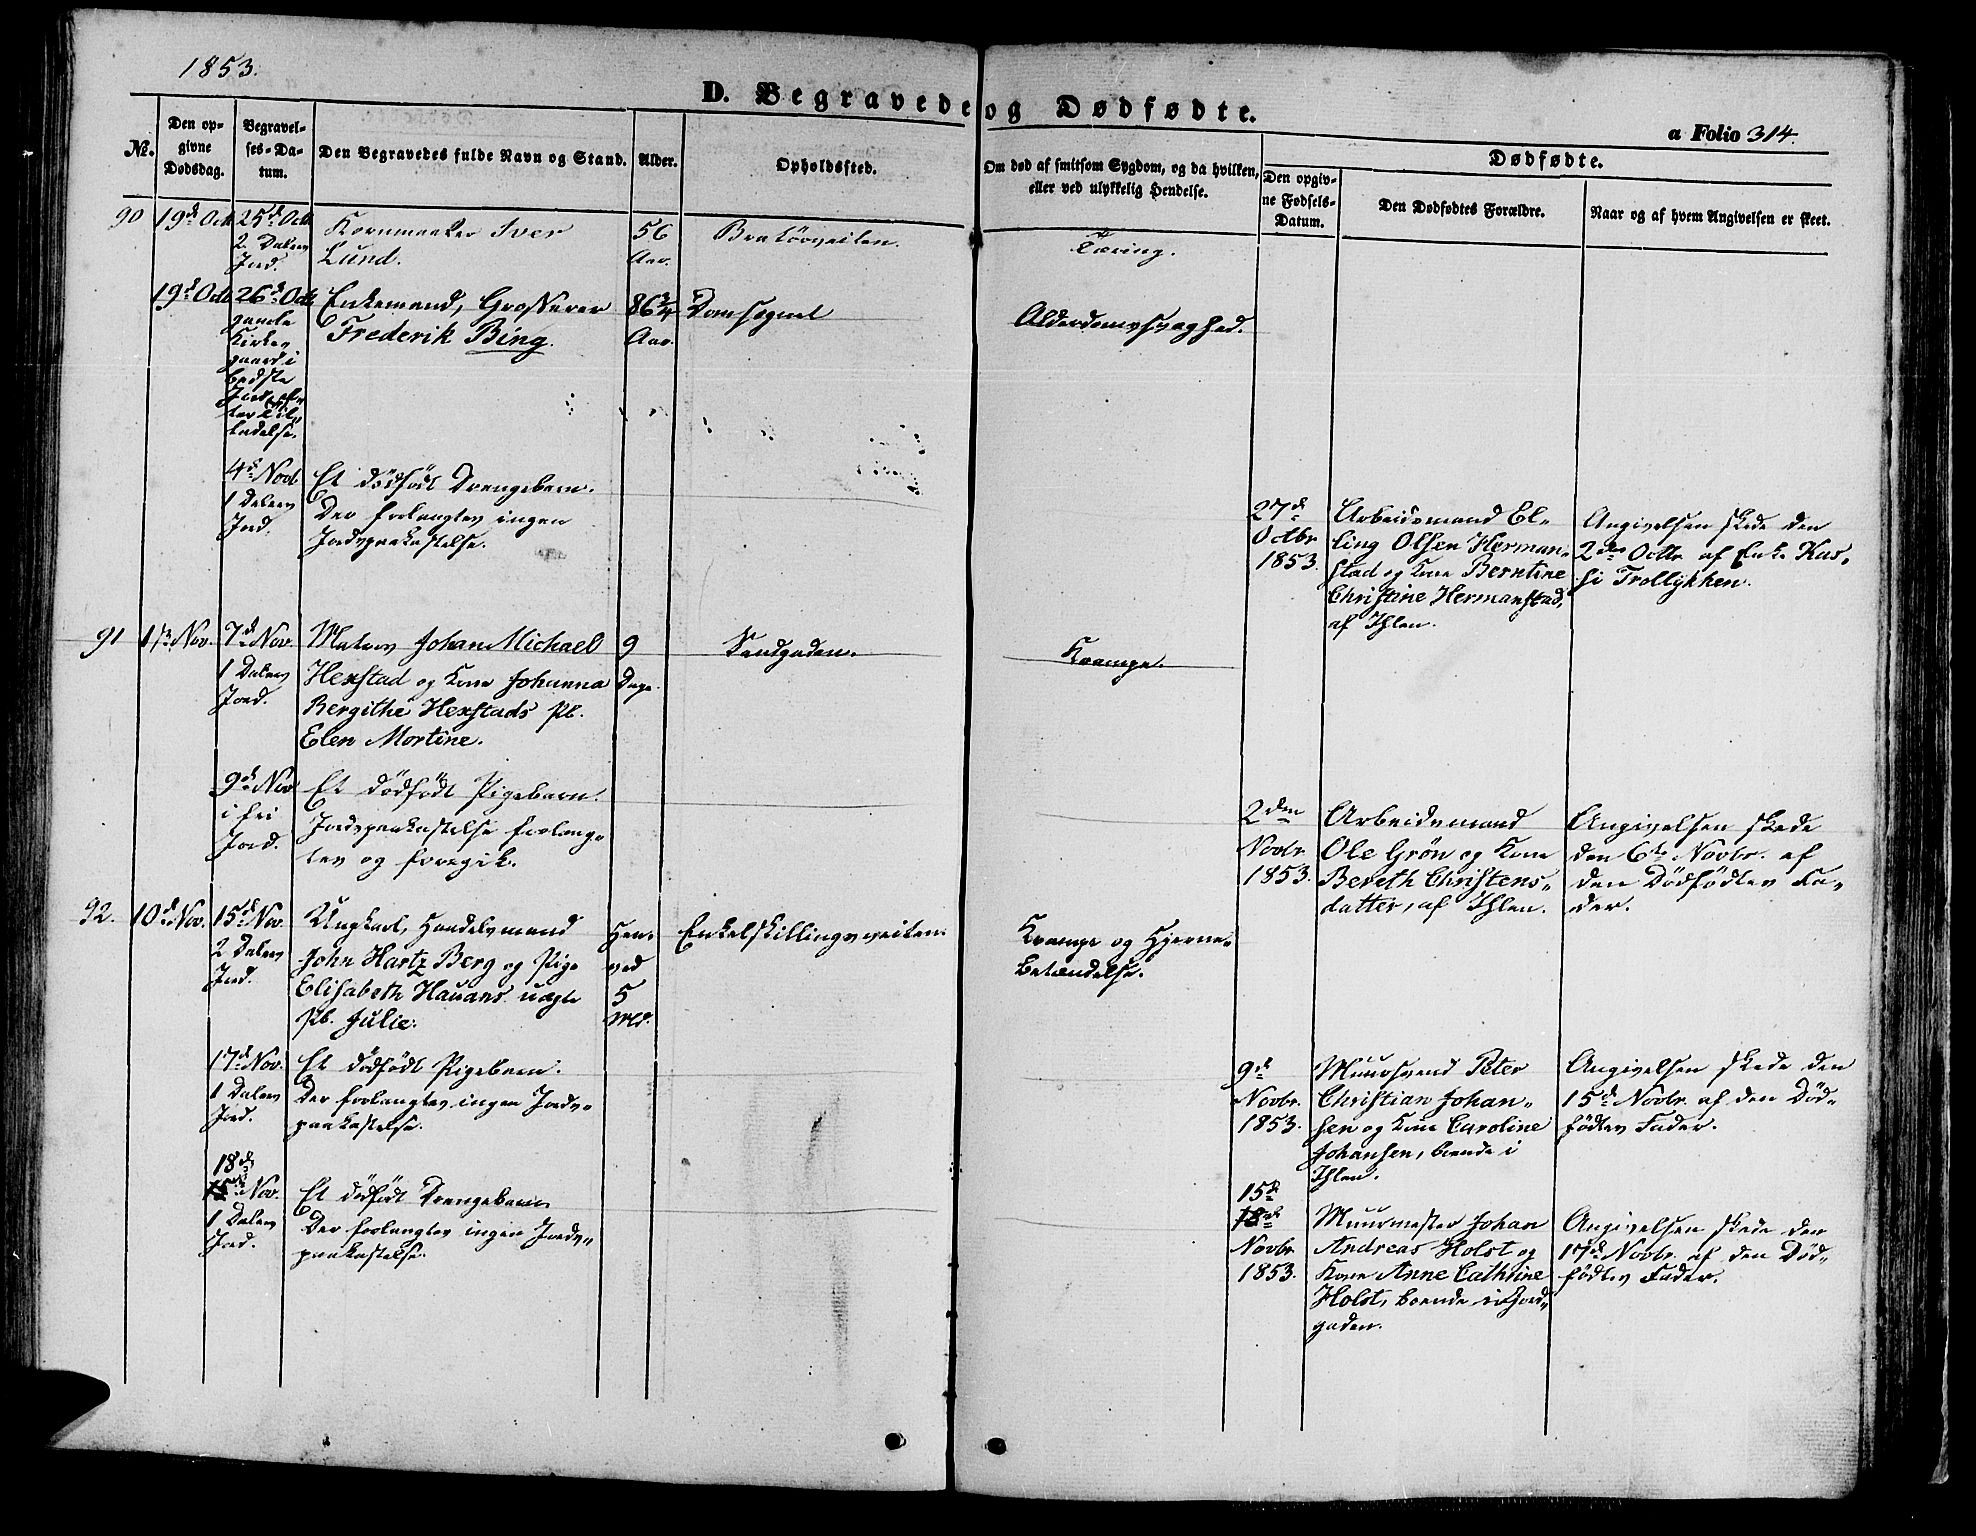 1853.
D. Begravede og Dødfødte.
a Folio 314.
No.
Den op-
givne
Dødsdag.
Begravel-
ses-Da-
tum.
Den Begravedes fulde Navn og Stand.
Alder.
Opholdssted.
Om død af smitsom Sygdom, og da hvilken,
eller ved ulykkelig Hendelse.
Dødfødte.
Den opgiv-
ne Fødsels-
Datum.
Den Dødfødtes Forældre.
Naar og af hvem Angivelsen er skeet.
90
19d Octb
25d Octb
2 Dalers
Jord.
Kornmaaler Iver
Lund.
56
Aar.
Bratørveiten.
Tæring.
19d Octb
26d Octb
gamle
Kirke-
gaard i
bedste
Jord
Enkemand, Grosserer
Frederik Bing.
86 3/4
Aar.
Domsognet
Alderdomssvaghed.
4d Novb
1 Dalers
Jord.
Et dødfødt Drengebarn.
Der forlangtes ingen
Jordspaakastelse.
27d
Octbr
1853.
Arbeidsmand El-
ling Olsen Herman-
stad og Kone Berntine
Christine Hermanstad,
af Ihlen.
Angivelsen skede den
2den Octbr af Enke Kar-
si Trollykken.
91
1ste Nov.
7d Nov
1 Dalers
Jord.
Matros Johan Michael
Hexstad og Kone Johanna
Bergithe Hexstads Pb.
Elen Mortine.
9
Dage.
Sandgaden.
Krampe.
9d Nov
i fri
Jord.
Et dødfødt Pigebarn.
Jordspaakastelse forlang-
tes og foregik.
2den
Novbr
1853.
Arbeidsmand
Ole Grøn og Kone
Bereth Christens-
datter, af Ihlen.
Angivelsen skede
den 6te Novbr. af
den Dødfødtes Fa-
der.
92.
10d Nov.
15d Nov.
2 Dalers
Jord.
Ungkarl, Handelsmand
John Hartz Berg og Pige
Elisabeth Hauans uægte
Pb. Julie.
Hen-
ved
5
Md.
Enkelskillingsveiten.
Krampe og Hjerne-
betændelse.
17d Nov.
1 Dalers
Jord.
Et dødfødt Pigebarn.
Der forlangtes ingen Jords-
paakastelse.
9d
Novbr.
1853.
Muursvend Peter
Christian Johan-
sen og Kone Caroline
Johansen, boende i
Ihlen.
Angivelsen skede den
15d Novbr. af den Død-
fødtes Fader.
18d
15d Nov.
1 Dalers
Jord.
Et dødfødt Drengebarn
Der forlangtes ingen Jords-
paakastelse.
15d
18d
Novbr
1853.
Muurmester Johan
Andreas Holst og
Kone Anne Cathrine
Holst, boende i Fjord-
gaden.
Angivelsen skede den
17d Novbr. af den Død-
fødtes Fader.